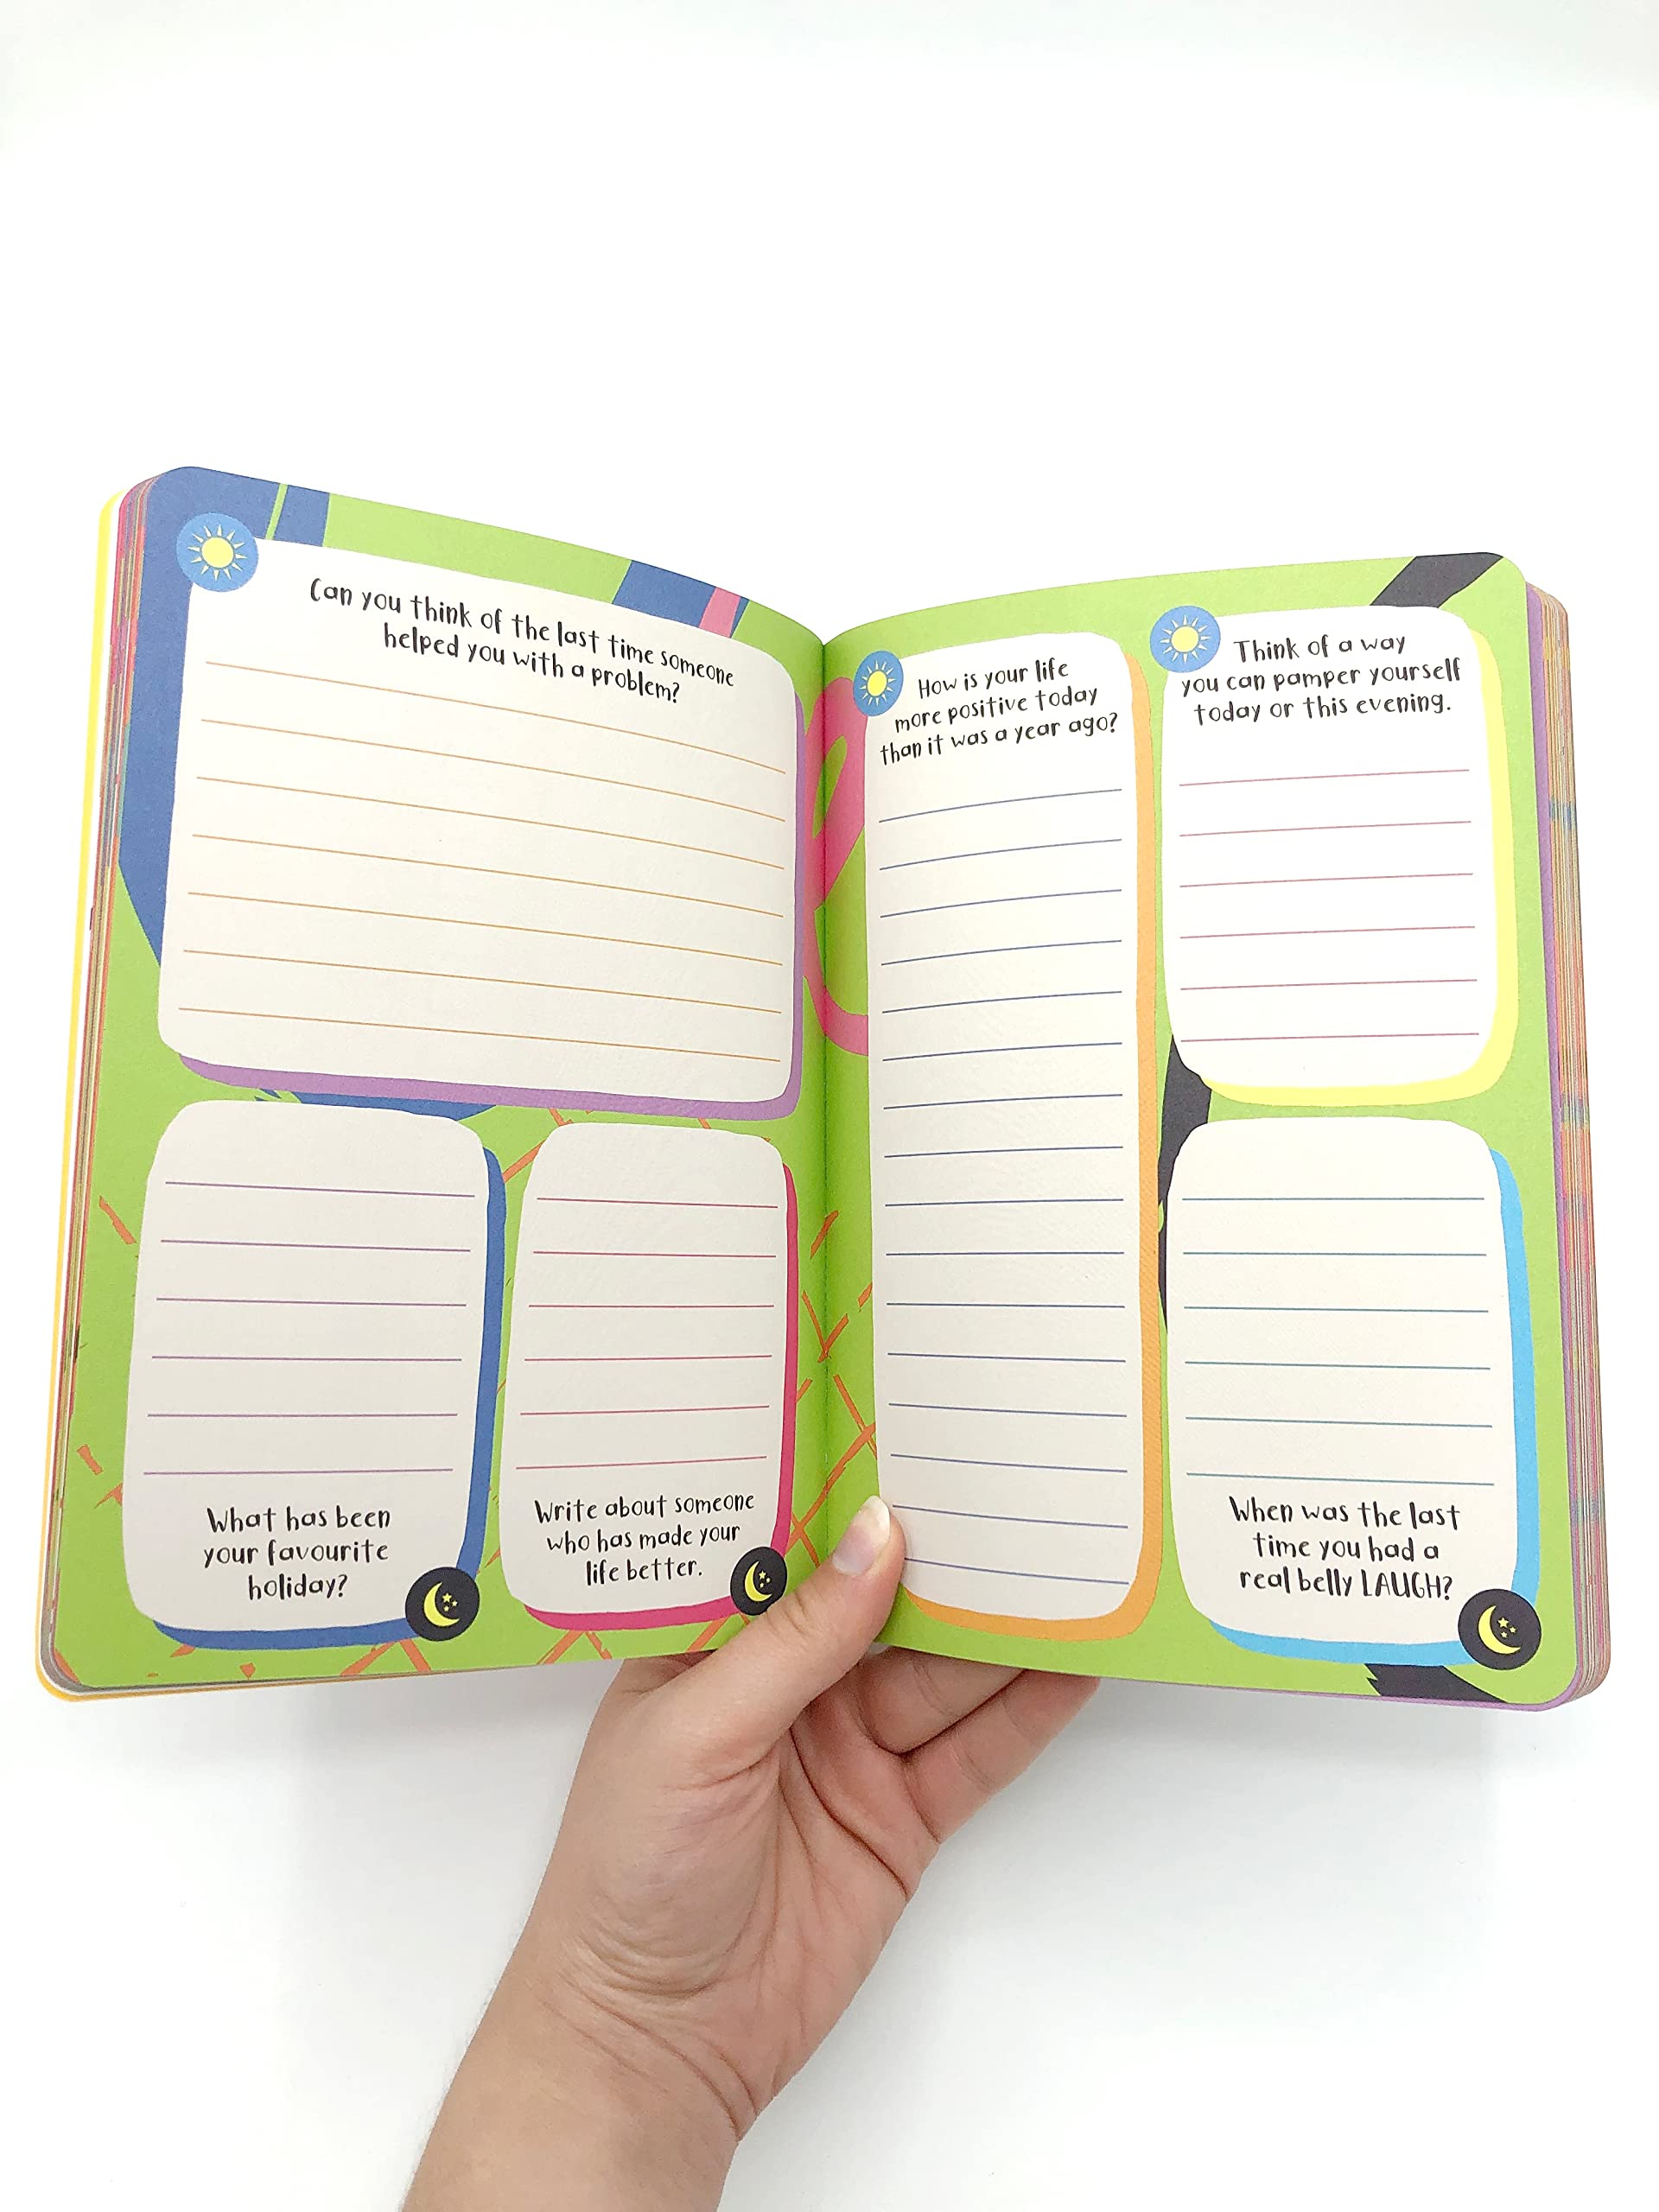 Can you think of the last time someone
helped you with a problem?
What has been
your favourite
holiday?
Write about someone
who has made your
life better.
How is your life
more positive today
than it was a year ago?
Think of a way
you can pamper yourself
today or this evening.
When was the last
time you had a
real belly LAUGH?